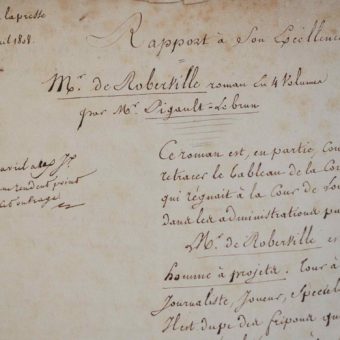 la presse
1808.
Rapport à Son Excellence
Mr. de Roberville roman en 4 Volumes
par Mr. Pigault-Lebrun
avril
rendent point
ouvrage
Ce roman est, en partie, Con
retracer le tableau de la Co
qui régnait à la Cour de Lou
dans les administrations pu
Mr. de Roberville es
homme à projets. Tour à
Journaliste, Joueur, Spécul
Il est dupe des fripons qu